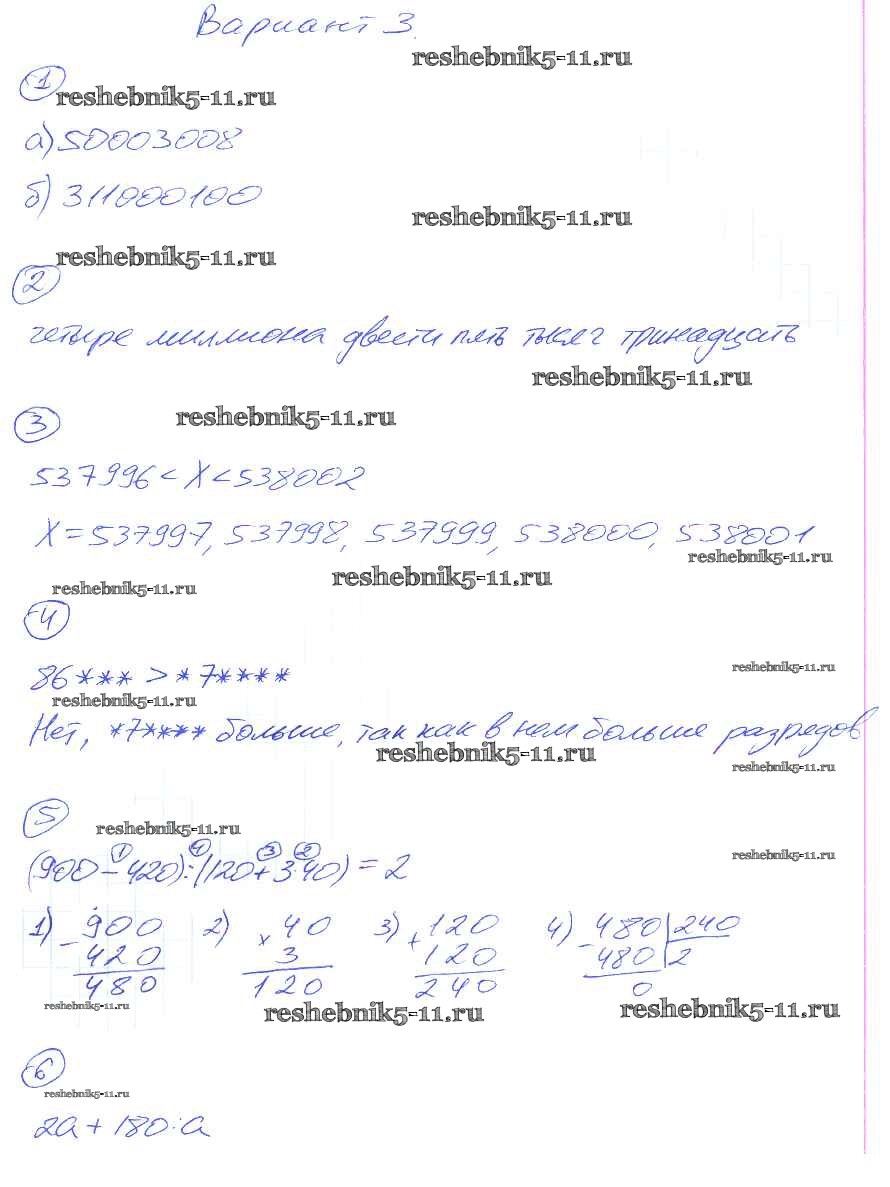 Вариант 3.
reshebnik5-11.ru
1
reshebnik5-11.ru
а) 50003008
б) 311000100
reshebnik5-11.ru
reshebnik5-11.ru
2
четыре миллиона двести пять тысяч тринадцать
reshebnik5-11.ru
3
reshebnik5-11.ru
537996 < X < 538002
X = 537997, 537998, 537999, 538000, 538001
reshebnik5-11.ru
reshebnik5-11.ru
reshebnik5-11.ru
4
86*** > *7****
reshebnik5-11.ru
reshebnik5-11.ru
Нет, *7**** больше, так как в нем больше разредов
reshebnik5-11.ru
reshebnik5-11.ru
5
reshebnik5-11.ru
reshebnik5-11.ru
1 4 3 2
(900 - 420) : (120 + 3·40) = 2
1) 900 2) 40 3) 120 4) 480 240
- 420 x 3 + 120 - 480 2
480 120 240 0
reshebnik5-11.ru
reshebnik5-11.ru
reshebnik5-11.ru
6
reshebnik5-11.ru
2a + 180 : a